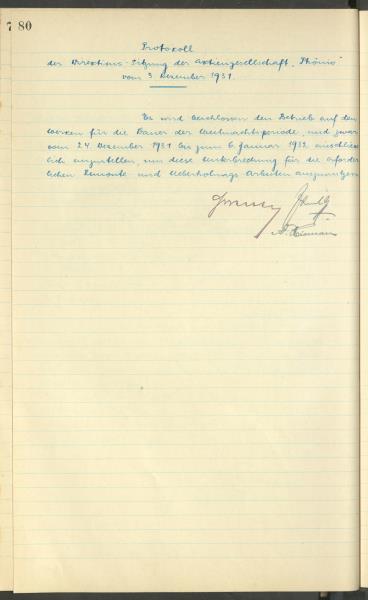 7 80
Protokoll
der Direktions-Sitzung der Aktiengesellschaft „Phönix"
vom 3 Dezember 1931.
Es wird beschlossen den Betrieb auf den
Werken für die Dauer der Weihnachtsperiode, und zwar
vom 24. Dezember 1931 bis zum 6. Januar 1932 einschliess
lich einzustellen, um diese Unterbrechung für die erforder
lichen Remonte und Ueberholungs Arbeiten auszunutzen.